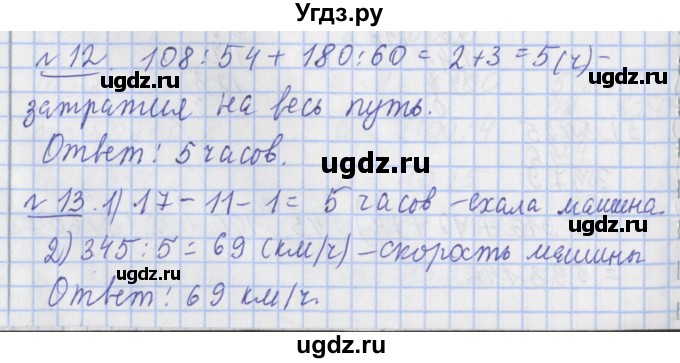 Угдз.ру
№ 12. 108 : 54 + 180 : 60 = 2 + 3 = 5 (ч) –
затратил на весь путь.
Ответ: 5 часов.
№ 13. 1) 17 – 11 – 1 = 5 часов – ехала машина.
2) 345 : 5 = 69 (км/ч) – скорость машины
Ответ: 69 км/ч.
ugdz.ru
ugdz.ru
ugdz.ru
ugdz.ru
ugdz.ru
ugdz.ru
ugdz.ru
ugdz.ru